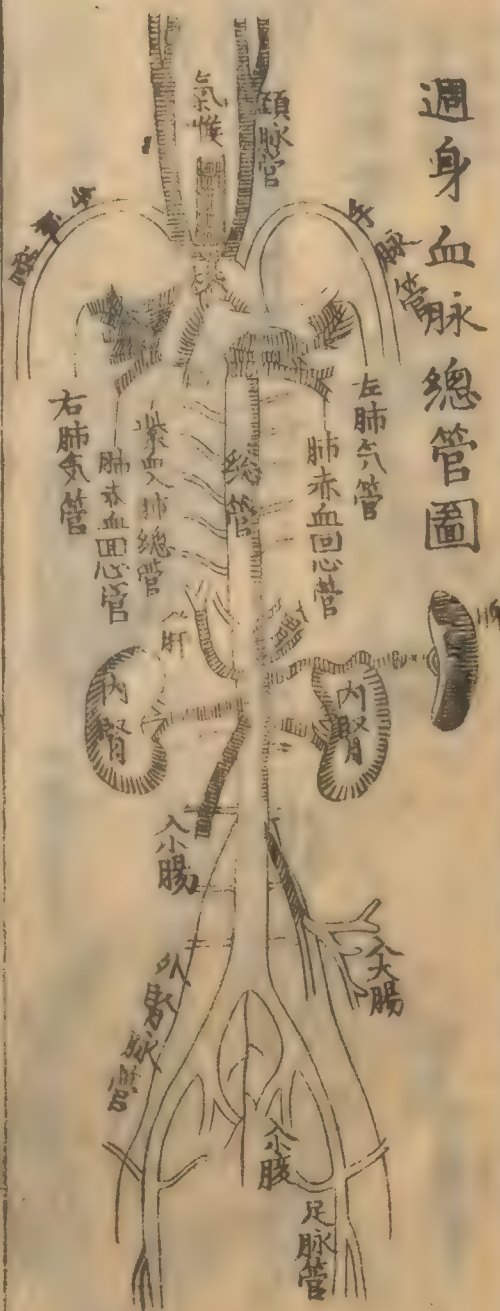 週身血脉總管圖
頸脉管
氣喉
手脉管
手脉管
左肺气管
肺赤血回心管
総管
紫血入肺總管
肺赤血回心管
右肺気管
入肝
內腎
內腎
入小腸
入大腸
外腎脉管
足脉管